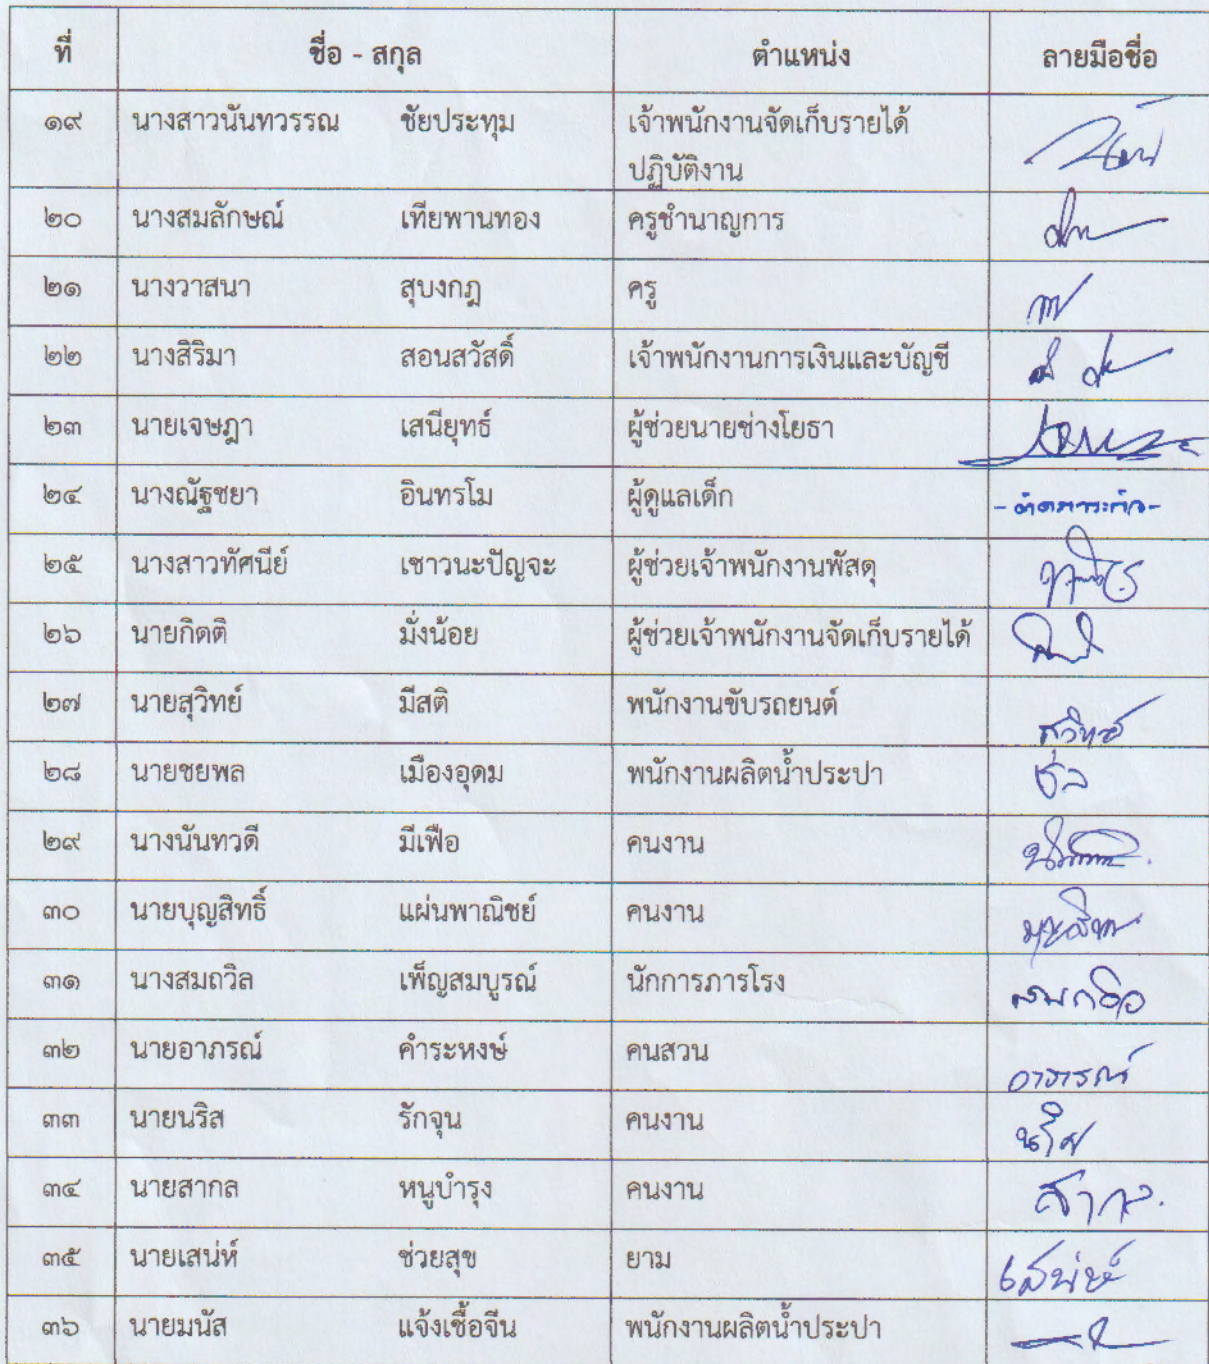 ที่ ชื่อ - สกุล ตำแหน่ง ลายมือชื่อ
๑๙ นางสาวนันทวรรณ ชัยประทุม เจ้าพนักงานจัดเก็บรายได้
ปฏิบัติงาน
๒๐ นางสมลักษณ์ เทียพานทอง ครูชำนาญการ
๒๑ นางวาสนา สุบงกฎ ครู
๒๒ นางสิริมา สอนสวัสดิ์ เจ้าพนักงานการเงินและบัญชี
๒๓ นายเจษฎา เสนียุทธ์ ผู้ช่วยนายช่างโยธา
๒๔ นางณัฐชยา อินทรโม ผู้ดูแลเด็ก -ติดภาระกิจ-
๒๕ นางสาวทัศนีย์ เชาวนะปัญจะ ผู้ช่วยเจ้าพนักงานพัสดุ
๒๖ นายกิตติ มั่งน้อย ผู้ช่วยเจ้าพนักงานจัดเก็บรายได้
๒๗ นายสุวิทย์ มีสติ พนักงานขับรถยนต์ สุวิทย์
๒๘ นายชยพล เมืองอุดม พนักงานผลิตน้ำประปา
๒๙ นางนันทวดี มีเฟือ คนงาน
๓๐ นายบุญสิทธิ์ แผ่นพาณิชย์ คนงาน
๓๑ นางสมถวิล เพ็ญสมบูรณ์ นักการภารโรง สมถวิล
๓๒ นายอาภรณ์ คำระหงษ์ คนสวน อาภรณ์
๓๓ นายนริส รักจุน คนงาน
๓๔ นายสากล หนูบำรุง คนงาน สากล
๓๕ นายเสน่ห์ ช่วยสุข ยาม เสน่ห์
๓๖ นายมนัส แจ้งเชื้อจีน พนักงานผลิตน้ำประปา